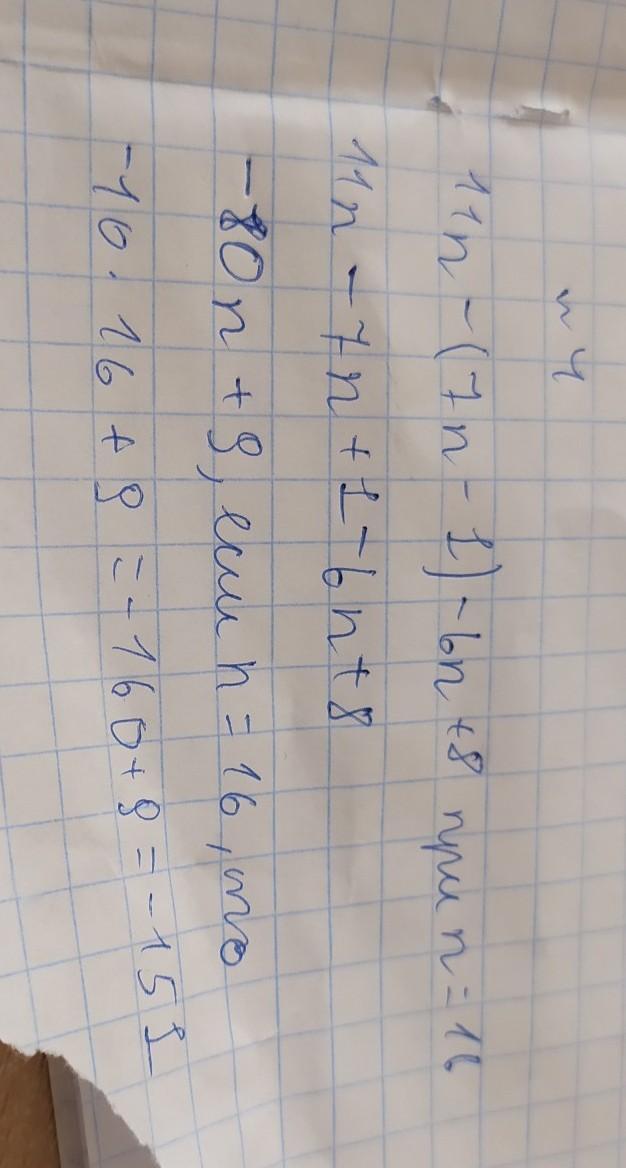 № 4
11n - (7n - 1) - 6n + 8 при n = 16
11n - 7n + 1 - 6n + 8
-80n + 9, если n = 16, то
-10 · 16 + 9 = -160 + 9 = -151